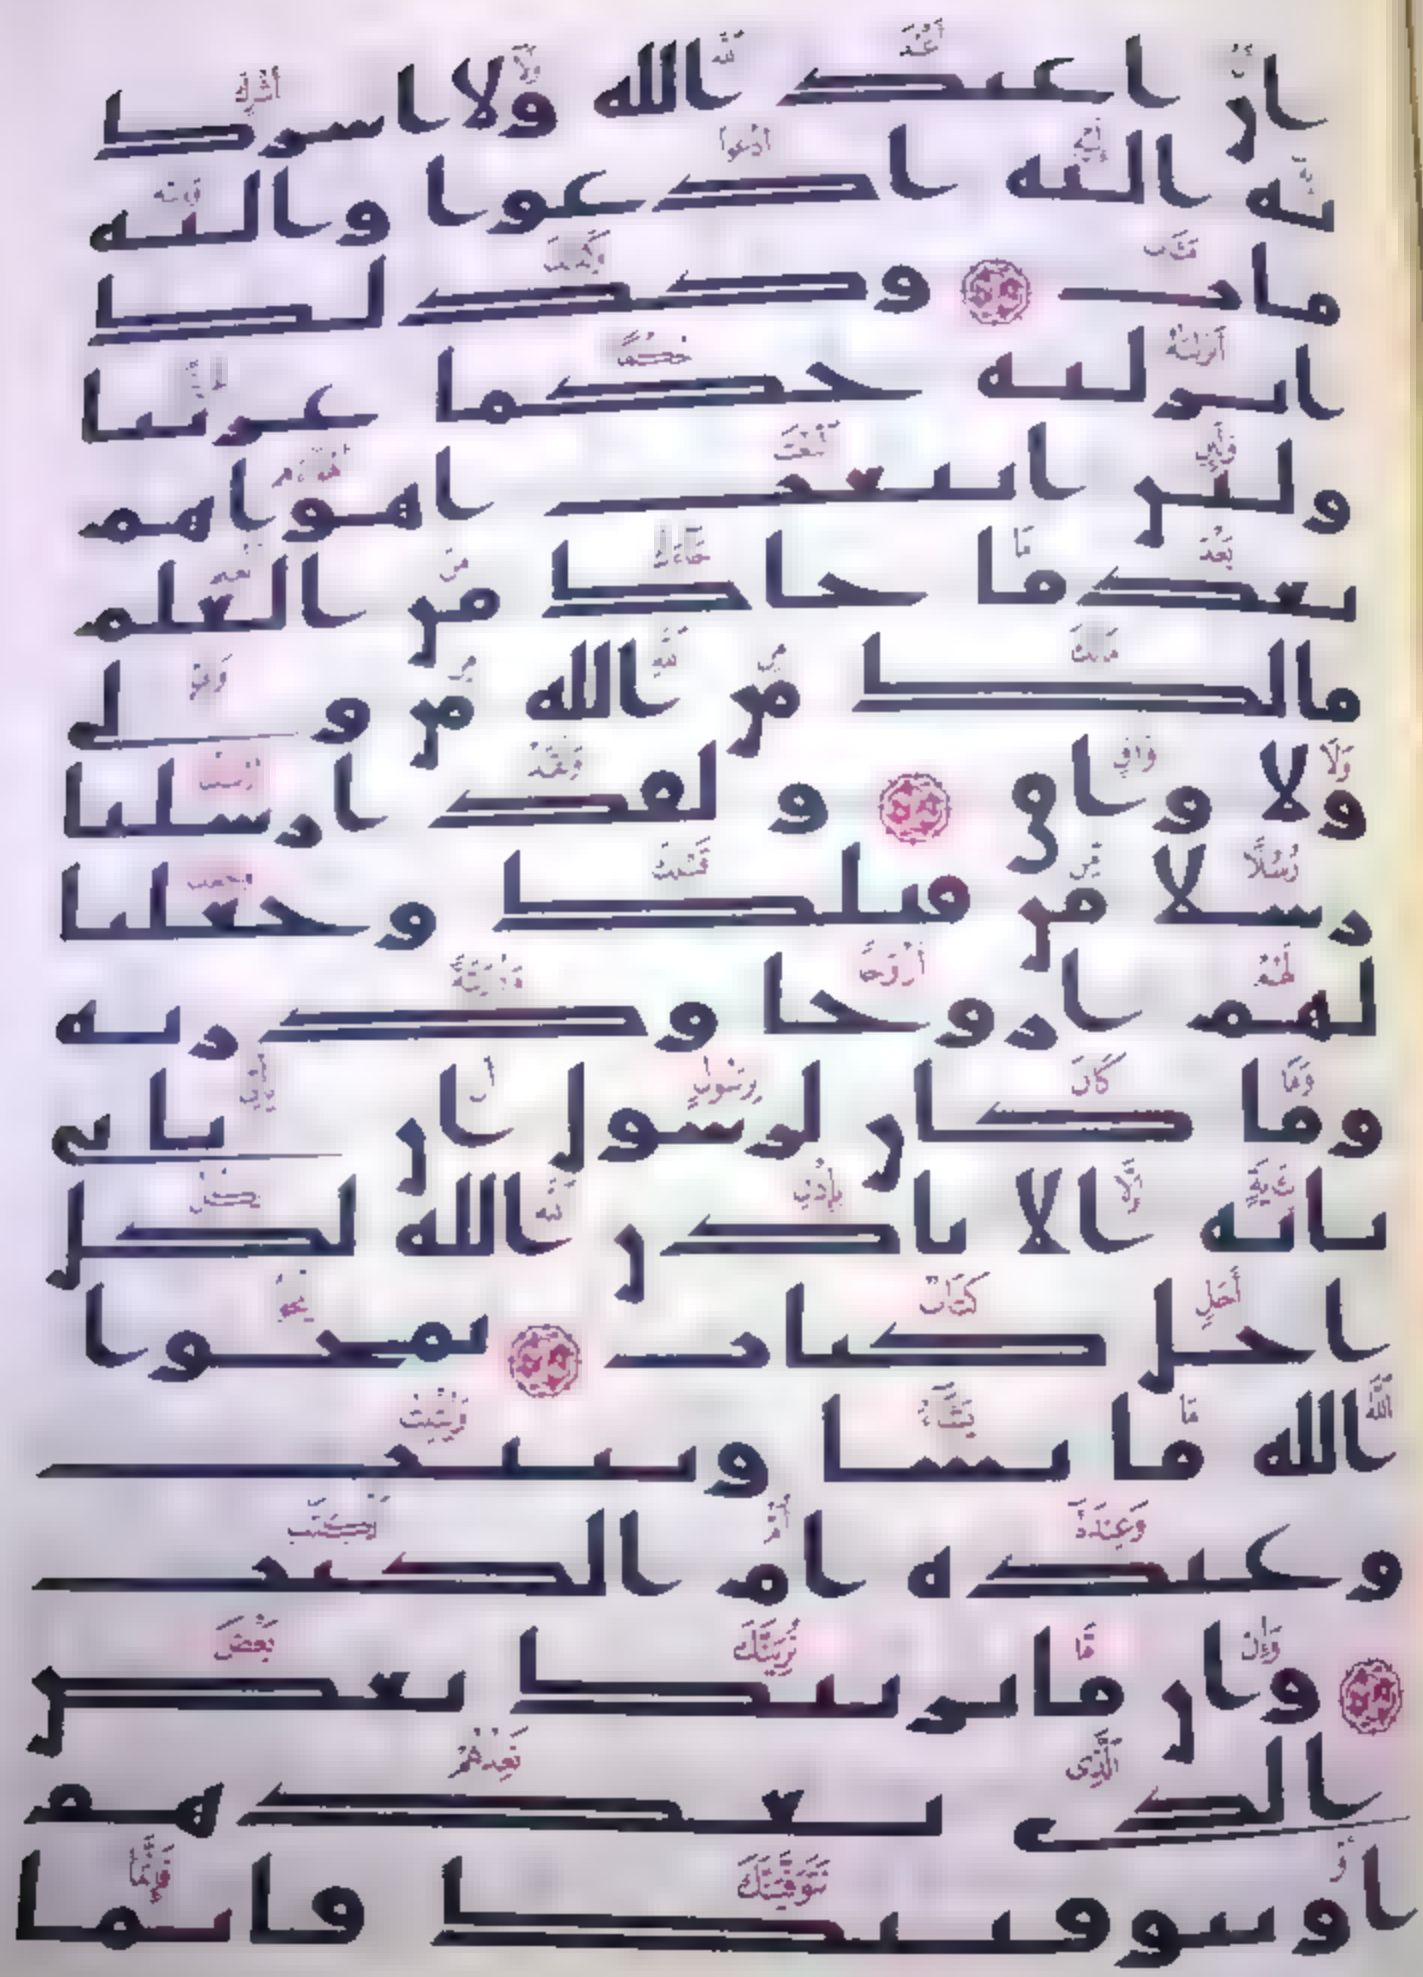 ان اعبد الله ولا اشرك
به اليه ادعوا واليه
ماب ۝ وكذلك
انزلنه حكما عربيا
ولئن اتبعت اهواهم
بعد ما جاك من العلم
مالك من الله من ولي
ولا واق ۝ ولقد ارسلنا
رسلا من قبلك وجعلنا
لهم ازوجا وذريه
وما كان لرسول ان ياتي
بايه الا باذن الله لكل
اجل كتاب ۝ يمحوا
الله ما يشا ويثبت
وعنده ام الكتب
۝ وان ما نرينك بعض
الذي نعدهم
او نتوفينك فانما